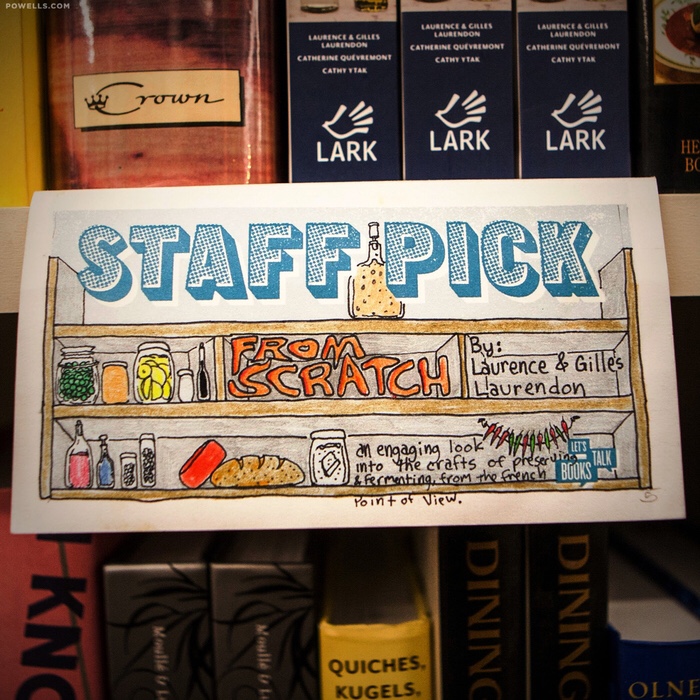 POWELLS.COM
Crown
LAURENCE & GILLES
LAURENDON
CATHERINE QUÉVREMONT
CATHY YTAK
LARK
LAURENCE & GILLES
LAURENDON
CATHERINE QUÉVREMONT
CATHY YTAK
LARK
LAURENCE & GILLES
LAURENDON
CATHERINE QUÉVREMONT
CATHY YTAK
LARK
STAFF PICK
FROM
SCRATCH
By:
Laurence & Gilles
Laurendon
an engaging look
into the crafts of preserving
& fermenting, from the French
Point of View.
LET'S
TALK
BOOKS
KNO
DINING
DINING
QUICHES,
KUGELS,
OLNE